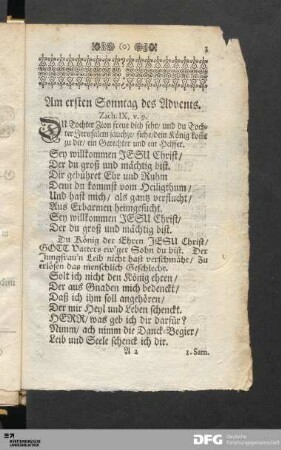 3
Am ersten Sonntag des Advents.
Zach. IX, v. 9.
DU Tochter Zion freue dich sehr/ und du Toch-
ter Jerusalem jauchze/ siehe/ dein König komt
zu dir/ ein Gerechter und ein Helffer.
Sey willkommen JESU Christ/
Der du groß und mächtig bist.
Dir gebühret Ehr und Ruhm
Denn du kommst vom Heiligthum/
Und hast mich/ als gantz verflucht/
Aus Erbarmen heimgesucht.
Sey willkommen JESU Christ/
Der du groß und mächtig bist.
Du König der Ehren JESU Christ/
GOTT Vatters ew'ger Sohn du bist. Der
Jungfrau'n Leib nicht hast verschmäht/ Zu
erlösen das menschlich Geschlecht.
Solt ich nicht den König ehren/
Der aus Gnaden mich bedenckt/
Daß ich ihm soll angehören/
Der mir Heyl und Leben schenckt.
HERR/ was geb ich dir darfür?
Nimm/ ach nimm die Danck-Begier/
Leib und Seele schenck ich dir.
A 2
1. Sam.
DFG
Deutsche
Forschungsgemeinschaft